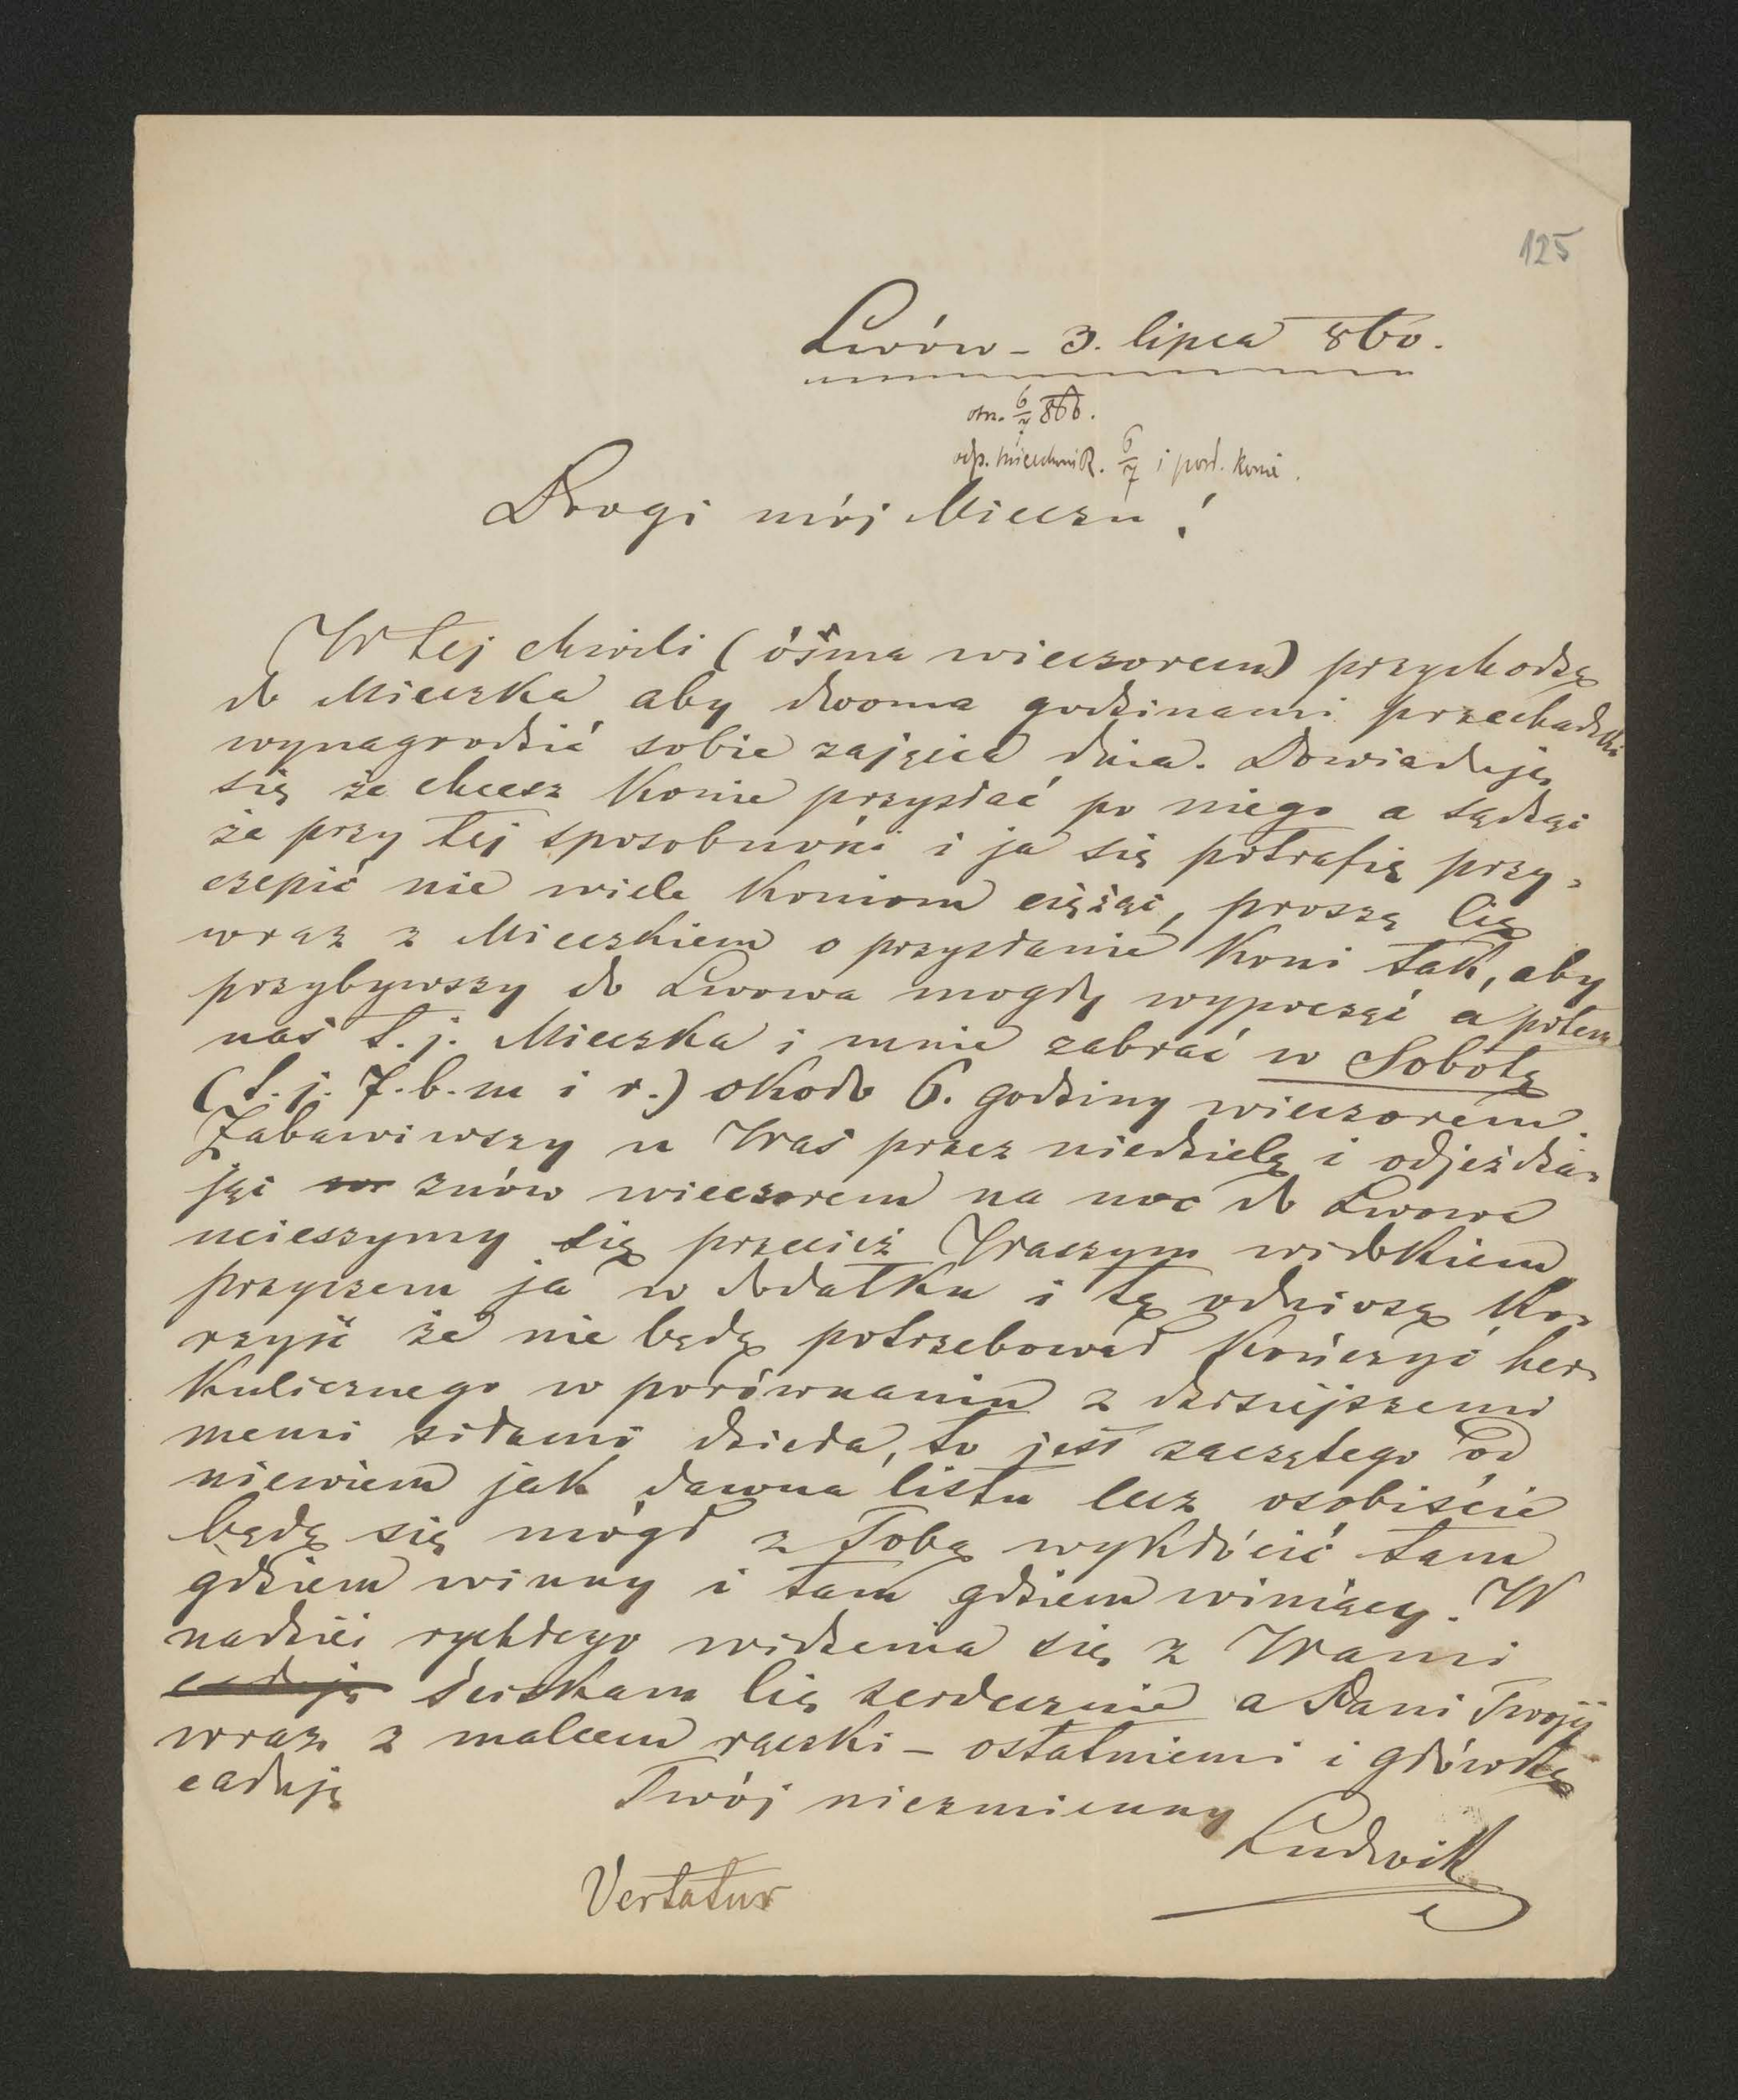 125
Lwów - 3. lipca 860.
otrz. 6/7 860.
odp. Mieczkowi 6/7 i posł. konie.
Drogi mój Mieciu!
W tej chwili (ósma wieczorem) przychodzę
do Mieczka aby dwoma godzinami przechadzki
wynagrodzić sobie zajęcia dnia. Dowiaduję
się że chcesz konie przysłać po niego a sądząc
że przy tej sposobności i ja się potrafię przy-
czepić nie wiele koniom ciężąc, proszę Cię
wraz z Mieczkiem o przysłanie koni tak, aby
przybywszy do Lwowa mogły wypocząć a potem
nas t. j. Mieczka i mnie zabrać w Sobotę
(t. j. 7. b. m i r.) około 6. godziny wieczorem.
Zabawiwszy u Was przez niedzielę i odjeżdża-
jąc znów wieczorem na noc do Lwowa
ucieszymy się przecież Waszym widokiem
przyczem ja w dodatku i tę odniosę ko-
rzyść że nie będę potrzebował kończyć her-
kulicznego w porównaniu z dzisiejszemi
memi siłami dzieła, to jest zaczętego od
niewiem jak dawna listu lecz osobiście
będę się mógł z Tobą wykłócić tam
gdziem winny i tam gdziem winiący. W
nadziei rychłego widzenia się z Wami
ściskam Cię serdecznie a Pani Twojéj
wraz z malcem rączki - ostatniemi i główkę
całuję
Twój niezmienny
Ludwik
Vertatur